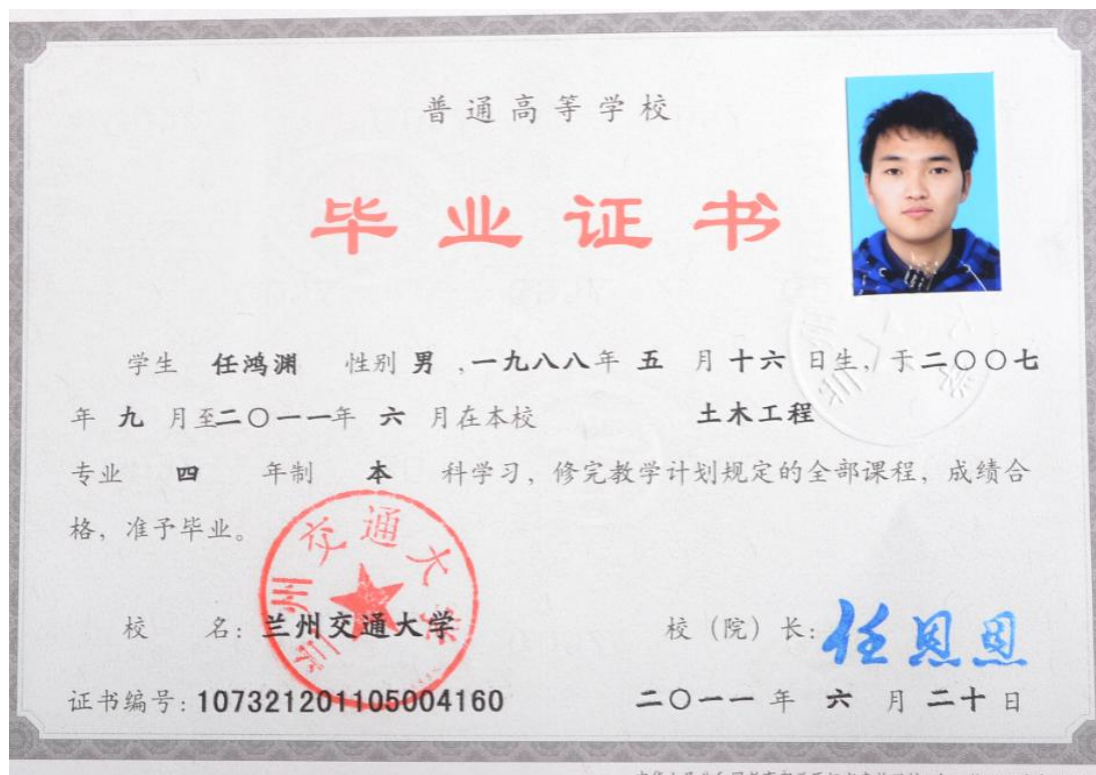 普通高等学校
毕业证书
学生 任鸿渊 性别 男 ,一九八八年 五 月 十六 日生, 于二〇〇七
年 九 月至二〇一一年 六 月在本校 土木工程
专业 四 年制 本 科学习, 修完教学计划规定的全部课程, 成绩合
格, 准予毕业。
兰州交通大学
校 名: 兰州交通大学 校(院)长: 任恩恩
证书编号: 107321201105004160 二〇一一 年 六 月 二十 日